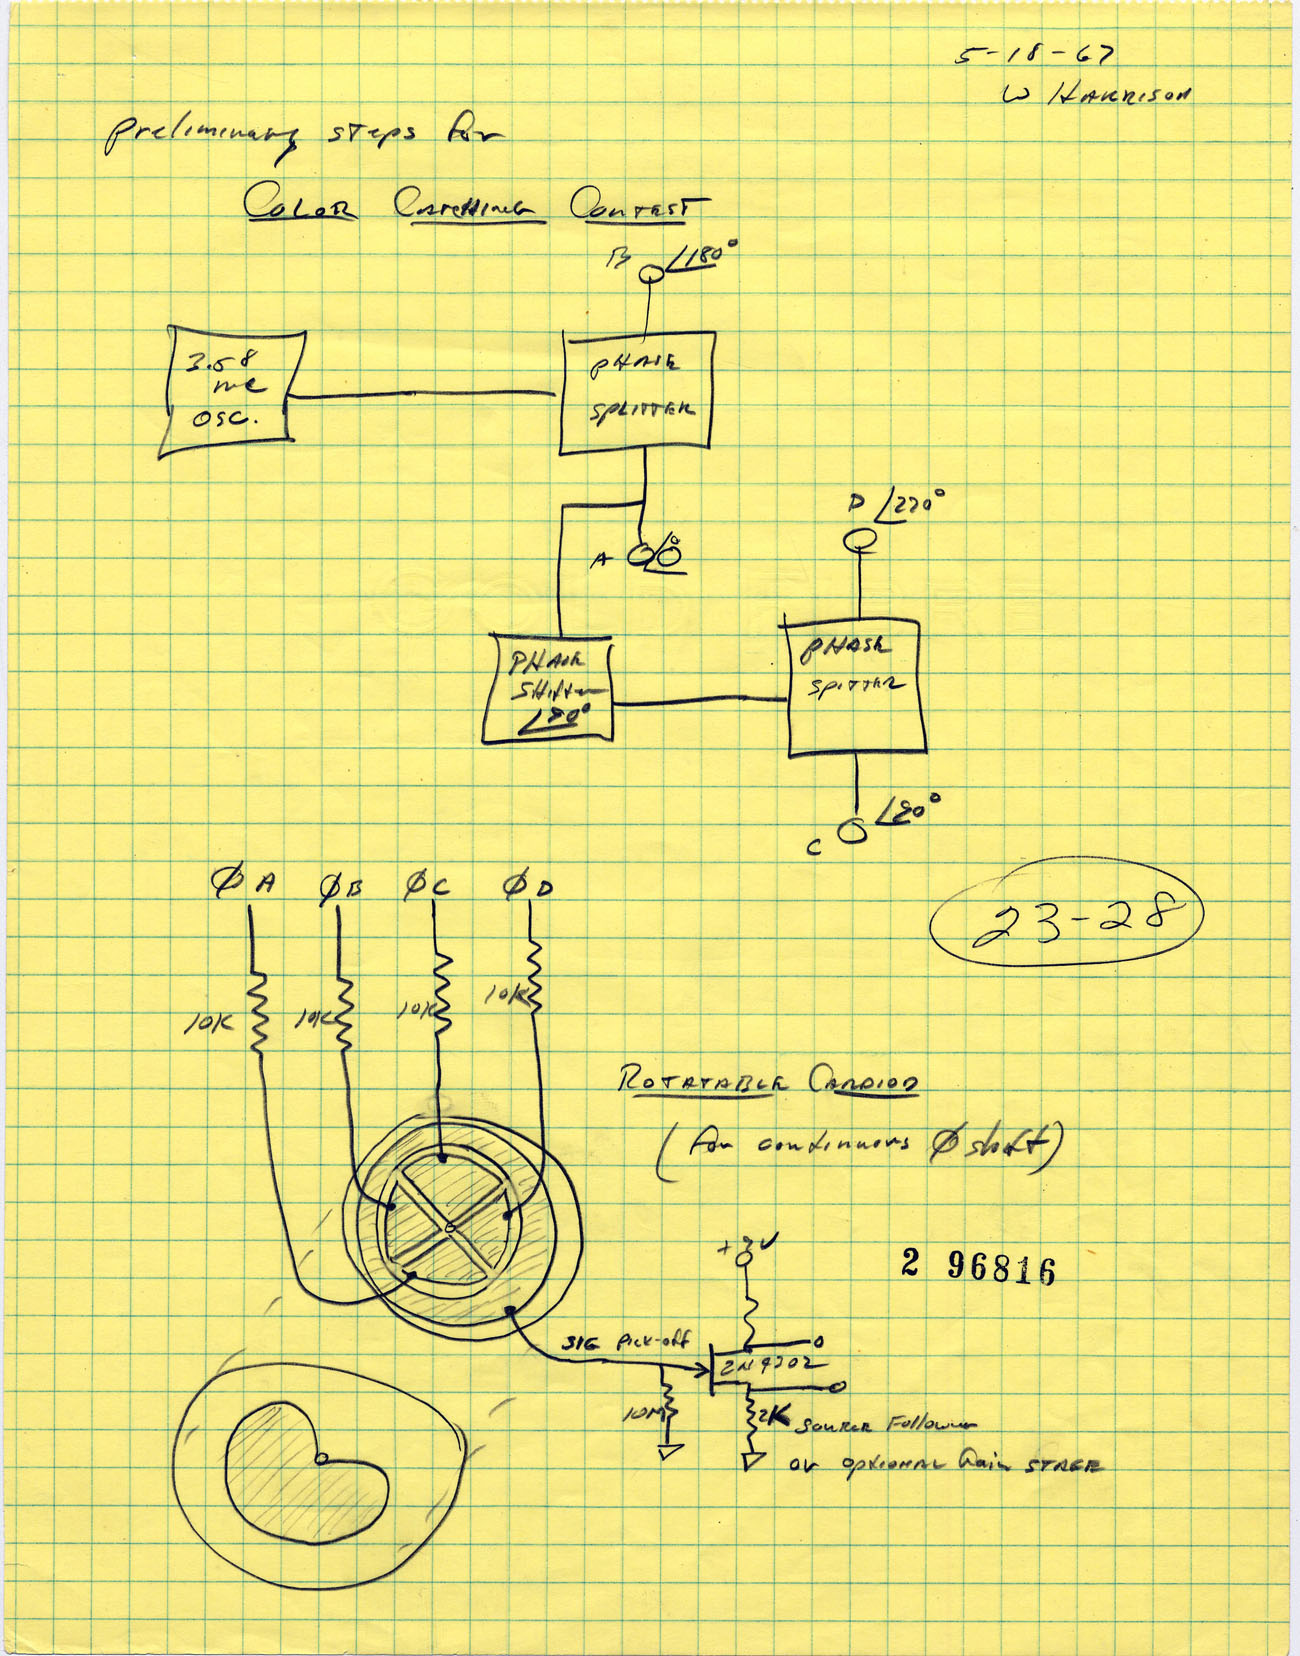 5-18-67
W HARRISON
Preliminary steps for
COLOR CATCHING CONTEST
B ∠180°
3.58
mc
OSC.
PHASE
SPLITTER
A ∠0°
D ∠270°
PHASE
SHIFTER
∠90°
PHASE
SPITTER
C ∠90°
ØA ØB ØC ØD
23-28
10K 10K 10K 10K
ROTATABLE CARDIOD
(for continuous Ø shift)
+9V
2 96816
SIG PICK-OFF
10M
2K SOURCE Follower
or optional Gain STAGE